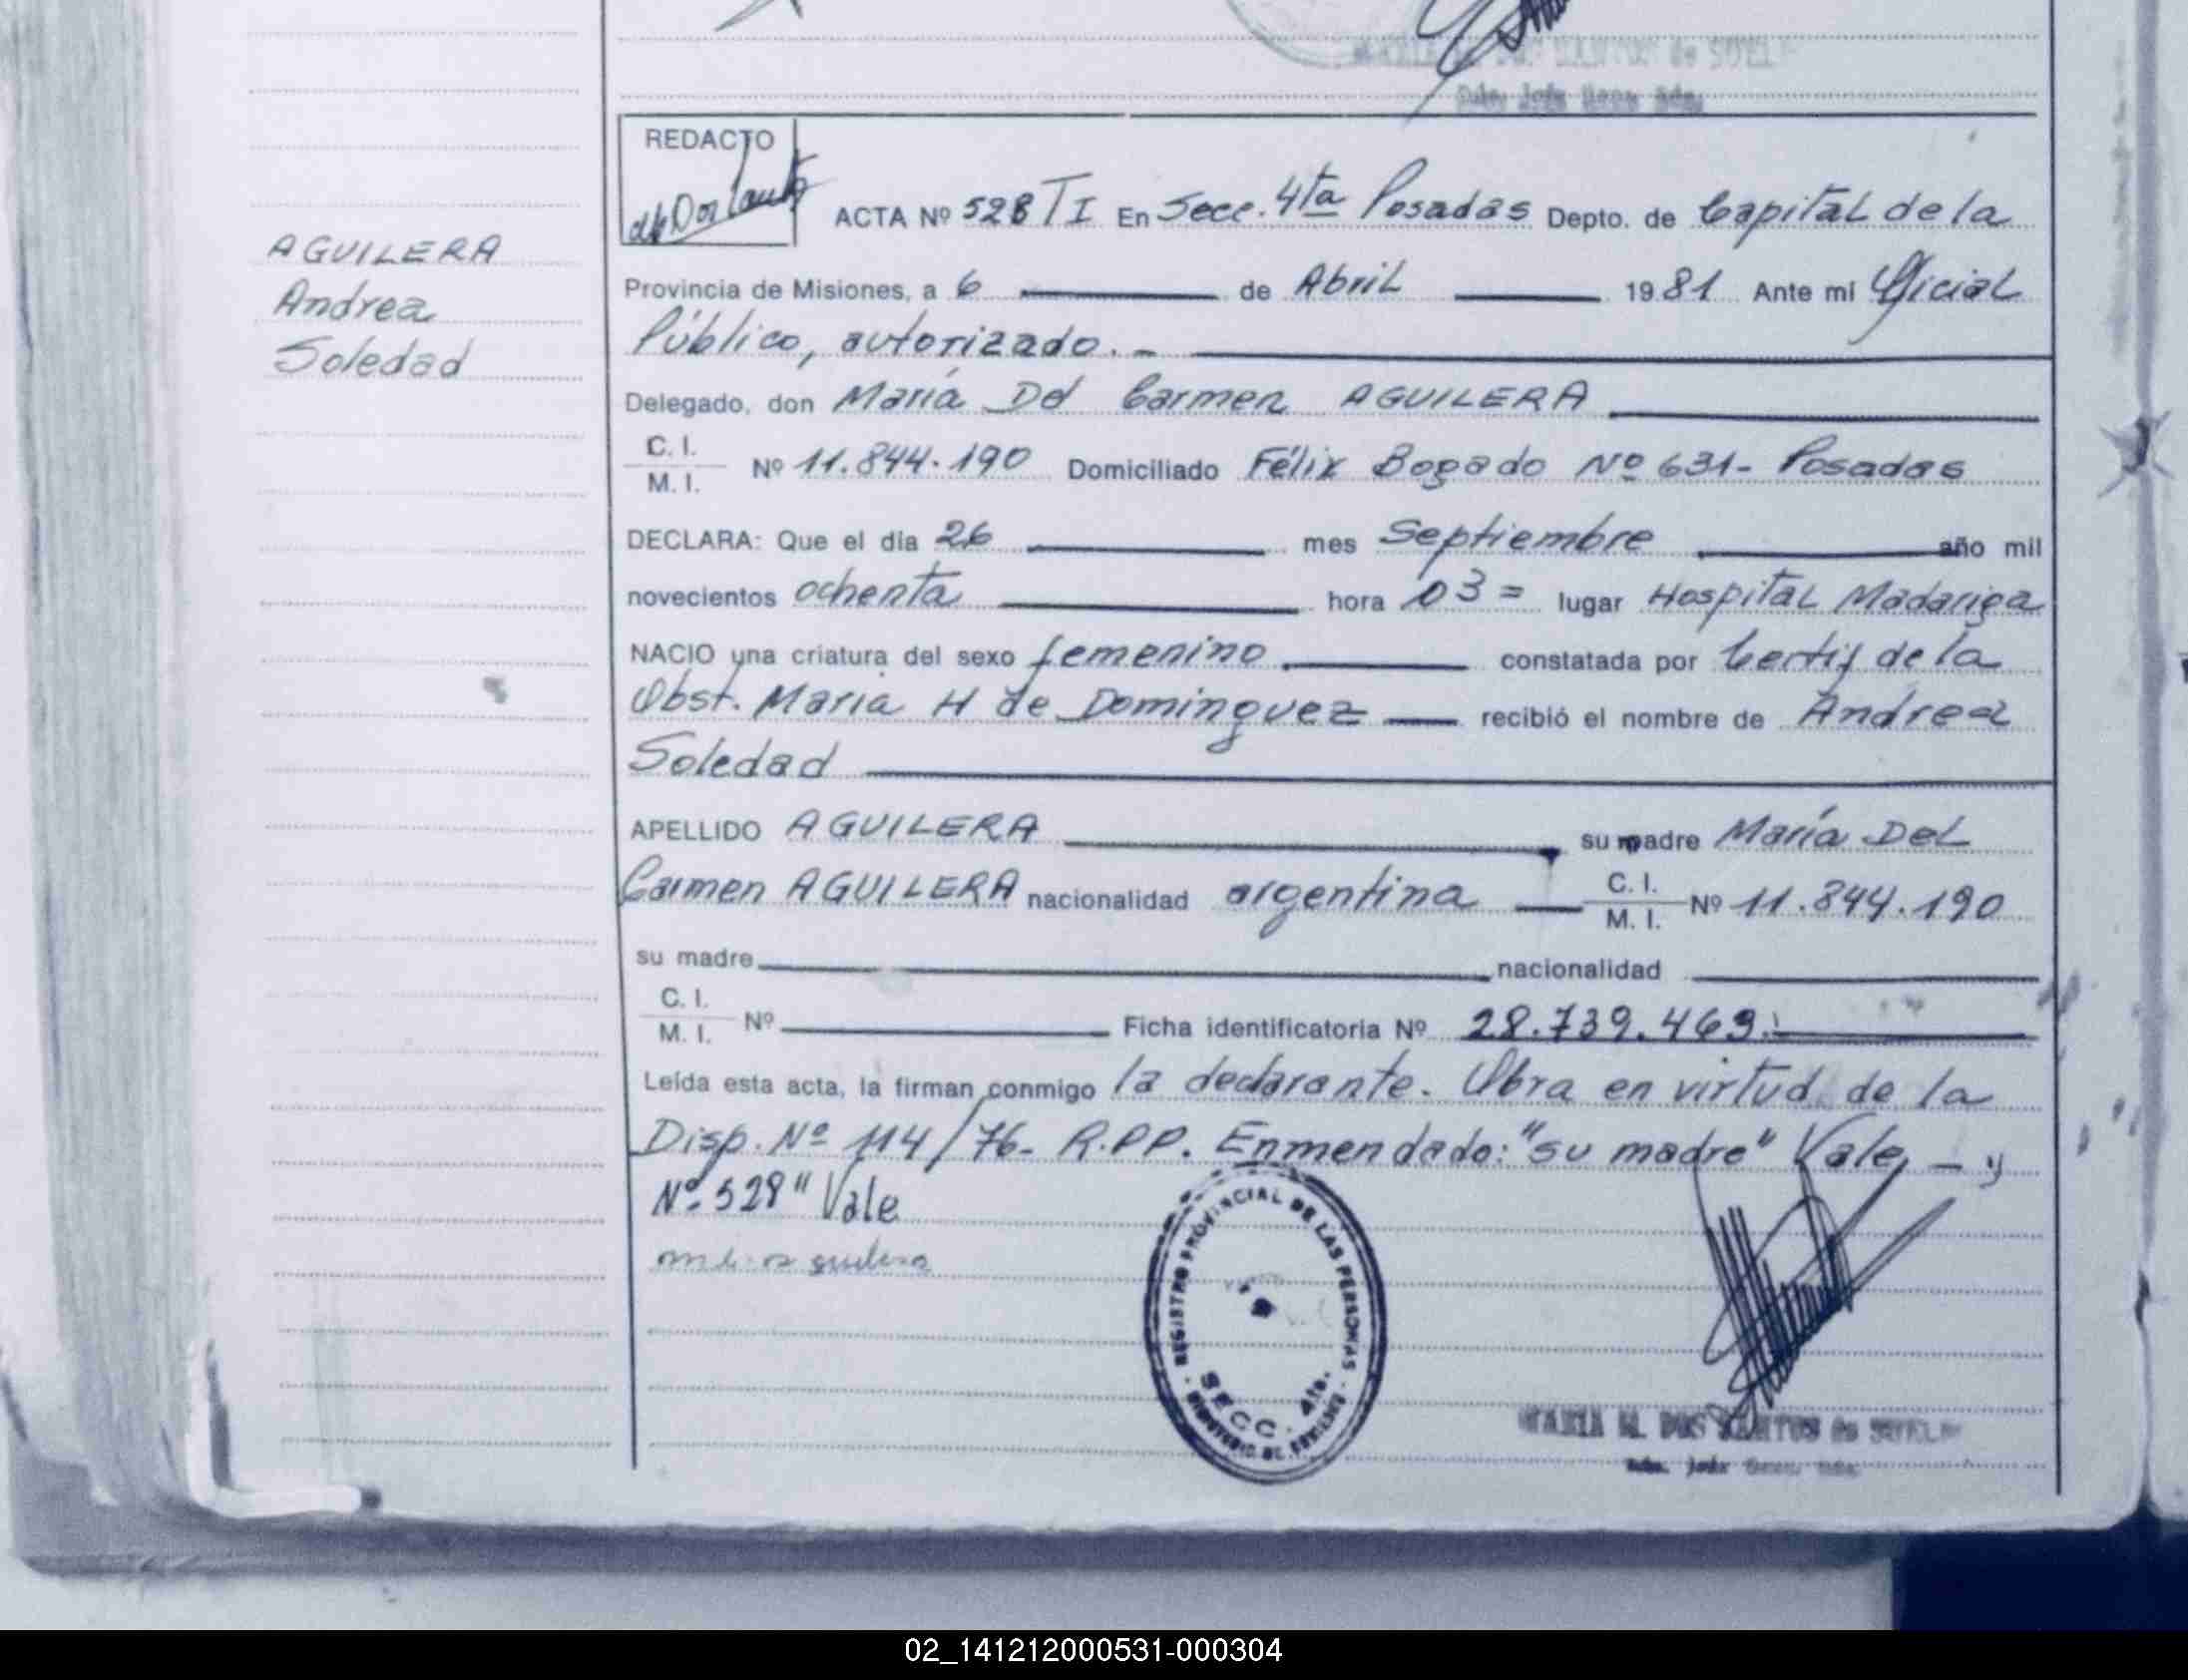 REDACTO
AGUILERA
Andrea
Soledad
ACTA Nº 528 TI En Secc. 4ta Posadas Depto. de Capital de la
Provincia de Misiones, a 6 de Abril 1981 Ante mi Oficial
Público, autorizado.-
Delegado, don María Del Carmen AGUILERA
C. I.
M. I. Nº 11.844.190 Domiciliado Félix Bogado Nº 631- Posadas
DECLARA: Que el día 26 mes Septiembre año mil
novecientos ochenta hora 03= lugar Hospital Madariaga
NACIO una criatura del sexo femenino constatada por Certif de la
Obst. Maria H de Dominguez recibió el nombre de Andrea
Soledad
APELLIDO AGUILERA su madre María Del
Carmen AGUILERA nacionalidad argentina C. I. M. I. Nº 11.844.190
su madre nacionalidad
C. I.
M. I. Nº Ficha identificatoria Nº 28.739.469.
Leída esta acta, la firman conmigo la declarante. Obra en virtud de la
Disp. Nº 114/76- R.PP. Enmendado: "su madre" Vale, - y
Nº 528" Vale
REGISTRO PROVINCIAL DE LAS PERSONAS
SECC. 4ta.
MARIA M. DOS SANTOS de
02_141212000531-000304